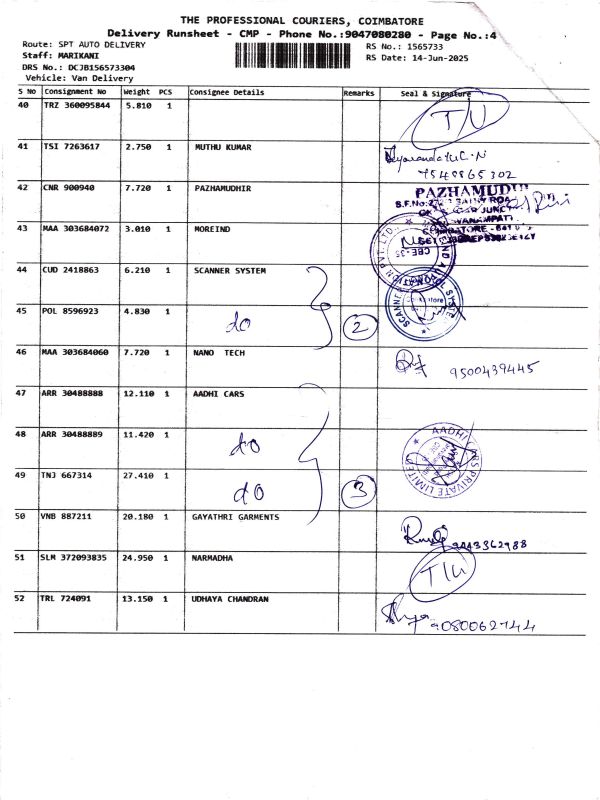 THE PROFESSIONAL COURIERS, COIMBATORE
Delivery Runsheet - CMP - Phone No.:9047080280 - Page No.:4
Route: SPT AUTO DELIVERY
RS No.: 1565733
Staff: MARIKANI
RS Date: 14-Jun-2025
DRS No.: DCJB156573304
Vehicle: Van Delivery
S No Consignment No Weight PCS Consignee Details Remarks Seal & Signature
40 TRZ 360095844 5.810 1 T/U
41 TSI 7263617 2.750 1 MUTHU KUMAR
7548865302
42 CNR 900940 7.720 1 PAZHAMUDHIR
43 MAA 303684072 3.010 1 MOREIND
44 CUD 2418863 6.210 1 SCANNER SYSTEM
45 POL 8596923 4.830 1 do 2
46 MAA 303684060 7.720 1 NANO TECH 9500439445
47 ARR 30488888 12.110 1 AADHI CARS
48 ARR 30488889 11.420 1 do
AADHI CARS PRIVATE LIMITED
49 TNJ 667314 27.410 1 do 3
50 VNB 887211 20.180 1 GAYATHRI GARMENTS
9443362988
51 SLM 372093835 24.950 1 NARMADHA T/U
52 TRL 724091 13.150 1 UDHAYA CHANDRAN
9080062744